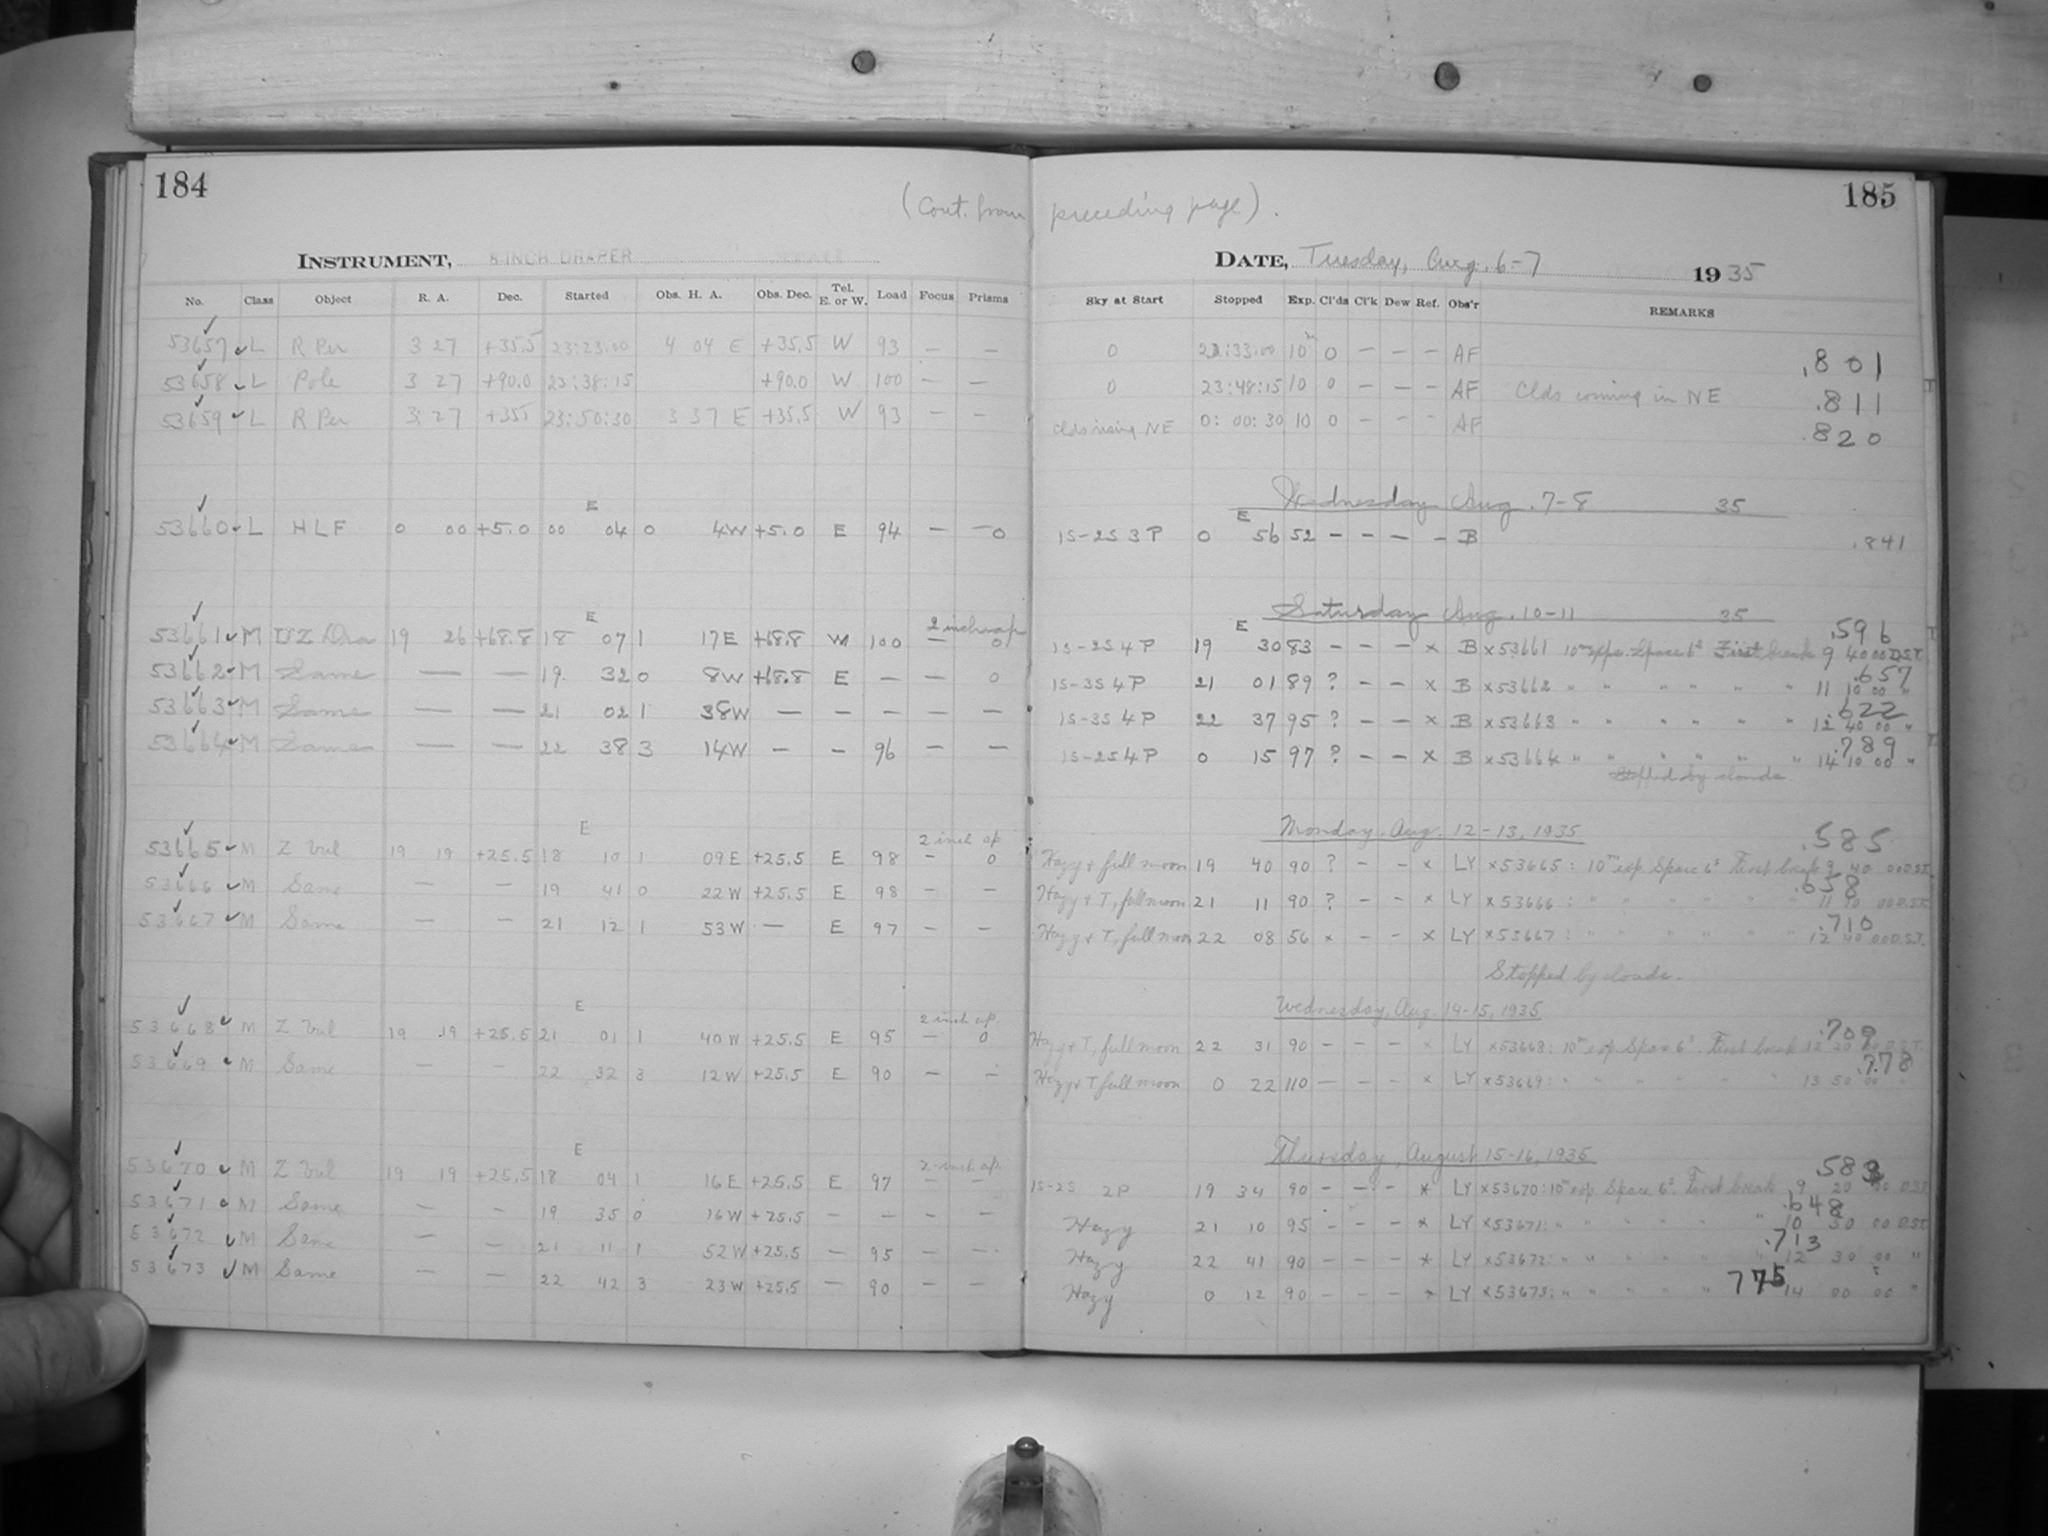 184
185
(Cont. from preceding page).
INSTRUMENT, 8 INCH DRAPER
DATE, Tuesday, Aug. 6-7 1935
No. Class Object R. A. Dec. Started Obs. H. A. Obs. Dec. Tel. E. or W. Load Focus Prisms Sky at Start Stopped Exp. Cl'ds Cl'k Dew Ref. Obs'r REMARKS
53657 L R Per 3 27 +35.5 23:23:00 4 04 E +35.5 W 93 — — 0 23:33:00 10m 0 — — — AF .801
53658 L Pole 3 27 +90.0 23:38:15 +90.0 W 100 — — 0 23:48:15 10 0 — — — AF Clds coming in NE .811
53659 L R Per 3 27 +35.5 23:50:30 3 37 E +35.5 W 93 — — Clds rising NE 0:00:30 10 0 — — — AF .820
Wednesday Aug. 7-8 35
E E
53660 L HLF 0 00 +5.0 00 04 0 4W +5.0 E 94 — — 0 1S-2S 3P 0 56 52 — — — — B .841
Saturday Aug. 10-11 35
E 2 inch ap E .596
53661 M UZ Dra 19 26 +68.8 18 07 1 17E +68.8 W 100 — 0 1S-2S 4P 19 30 83 — — — x B x53661 10m exp. Space 6s First break 9 40 00 D.S.T.
53662 M Same — — 19 32 0 8W +68.8 E — — 0 1S-3S 4P 21 01 89 ? — — x B x53662 " " " " " " 11 10 00 " .657
53663 M Same — — 21 02 1 38W — — — — — 1S-3S 4P 22 37 95 ? — — x B x53663 " " " " " " 12 40 00 " .622
53664 M Same — — 22 38 3 14W — — 96 — — 1S-2S 4P 0 15 97 ? — — x B x53664 " " " " " " 14 10 00 " .789
Stopped by clouds
Monday Aug. 12-13, 1935
E 2 inch ap .585
53665 M Z Vul 19 19 +25.5 18 10 1 09E +25.5 E 98 — 0 Hazy + full moon 19 40 90 ? — — x LY x53665: 10m exp Space 6s First break 9 40 00 D.S.T.
53666 M Same — — 19 41 0 22W +25.5 E 98 — — Hazy + T, full moon 21 11 90 ? — — x LY x53666: " " " " " " 11 10 00 D.S.T. .658
53667 M Same — — 21 12 1 53W — E 97 — — Hazy + T, full moon 22 08 56 x — — x LY x53667: " " " " " " 12 40 00 D.S.T. .710
Stopped by clouds.
Wednesday, Aug. 14-15, 1935
E 2 inch ap. .709
53668 M Z Vul 19 19 +25.5 21 01 1 40W +25.5 E 95 — 0 Hazy + T, full moon 22 31 90 — — — x LY x53668: 10m exp Space 6s. First break 12 20 00 D.S.T.
53669 M Same — — 22 32 3 12W +25.5 E 90 — — Hazy + T full moon 0 22 110 — — — x LY x53669: " " " " " " 13 50 00 " .778
Thursday, August 15-16, 1935
E 2-inch ap.
53670 M Z Vul 19 19 +25.5 18 04 1 16E +25.5 E 97 — — 1S-2S 2P 19 34 90 — — — x LY x53670: 10m exp. Space 6s. First break 9 20 00 D.S.T.
53671 M Same — — 19 35 0 16W +25.5 — — — — Hazy 21 10 95 — — — x LY x53671: " " " " " " 10 50 00 D.S.T. .648
53672 M Same — — 21 11 1 52W +25.5 — 95 — — Hazy 22 41 90 — — — x LY x53672: " " " " " " 12 30 00 " .713
53673 M Same — — 22 42 3 23W +25.5 — 90 — — Hazy 0 12 90 — — — x LY x53673: " " " " " 775 14 00 00 "